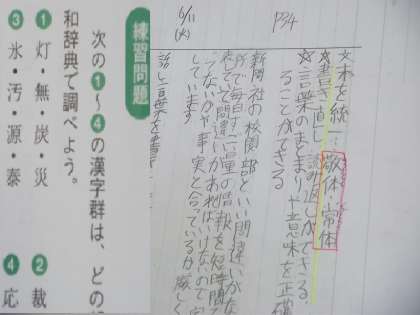 文末を統一:敬体・常体
☆書き直し 読み返しができる、
☆言葉のまとまりや意味を正確
ることができる
P34
新聞社の校閲部という間違いがな
所で毎日すごい量の情報を短時間で
間違いがあればいけないので
ないかや事実と合っているか厳しく
しています
6/11
(火)
練習問題
次の❶〜❹の漢字群は、どの
和辞典で調べよう。
❶ 灯・無・炭・災 ❷ 裁
❸ 氷・汚・源・泰 ❹ 応